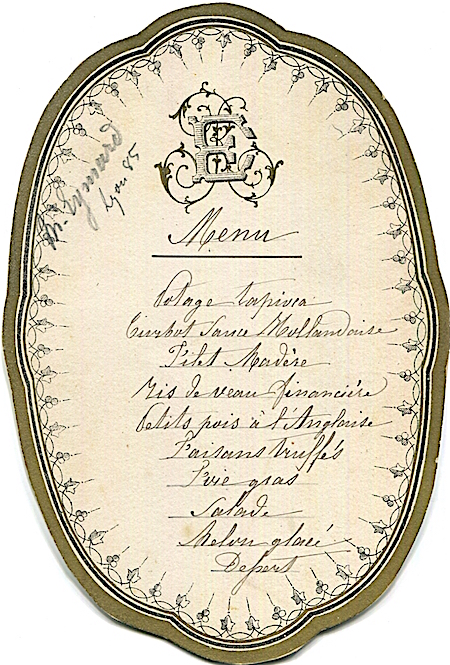 Menu
Potage tapioca
Turbot Sauce Hollandaise
Filet Madère
Ris de veau financière
Petits pois à l'Anglaise
Faisans truffés
Foie gras
Salade
Melon glacé
Dessert